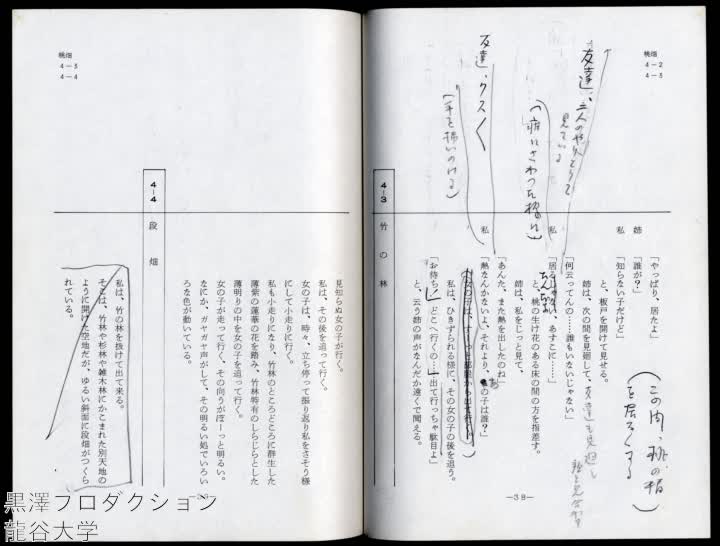 桃畑
4―2
4―3
姉　「やっぱり、居たよ」
私　「誰が？」
姉　「知らない子だけど」
と、板戸を開けて見せる。
姉は、次の間を見廻して、
「何云ってんの……誰もいないじゃない」
私　「居るじゃない、あすこに……」
ちゃんと
と、桃の生け花のある床の間の方を指差す。
姉は、私をじっと見て、
「あんた、また熱を出したのね」
私　「熱なんかないよ、それより、あの子は誰？」
女の子は、すーっと部屋から出て行く。
私は、ひきずられる様に、その女の子の後を追う。
「お待ち！　どこへ行くの……出て行っちゃ駄目よ」
と、云う姉の声がなんだか遠くで聞える。
友達、三人のやりとりを
見ている
友達、クスく
（手を掃いのける）
（この間、桃の精
を居なくする）
友達も見廻し
4―3　竹の林
―38―
桃畑
4―3
4―4
見知らぬ女の子が行く。
私は、その後を追って行く。
女の子は、時々、立ち停って振り返り私をさそう様
にして小走りに行く。
私も小走りになり、竹林のところどころに群生した
薄紫の蓮華の花を踏み、竹林特有のしらじらとした
薄明りの中を女の子を追って行く。
女の子が走って行く、その向うがぼーっと明るい。
なにか、ガヤガヤ声がして、その明るい処でいろい
ろな色が動いている。
4―4　段畑
私は、竹の林を抜けて出て来る。
そこは、竹林や杉林や雑木林にかこまれた別天地の
ように開けた空地だが、ゆるい斜面に段畑がつくら
れている。
黒澤プロダクション
龍谷大学